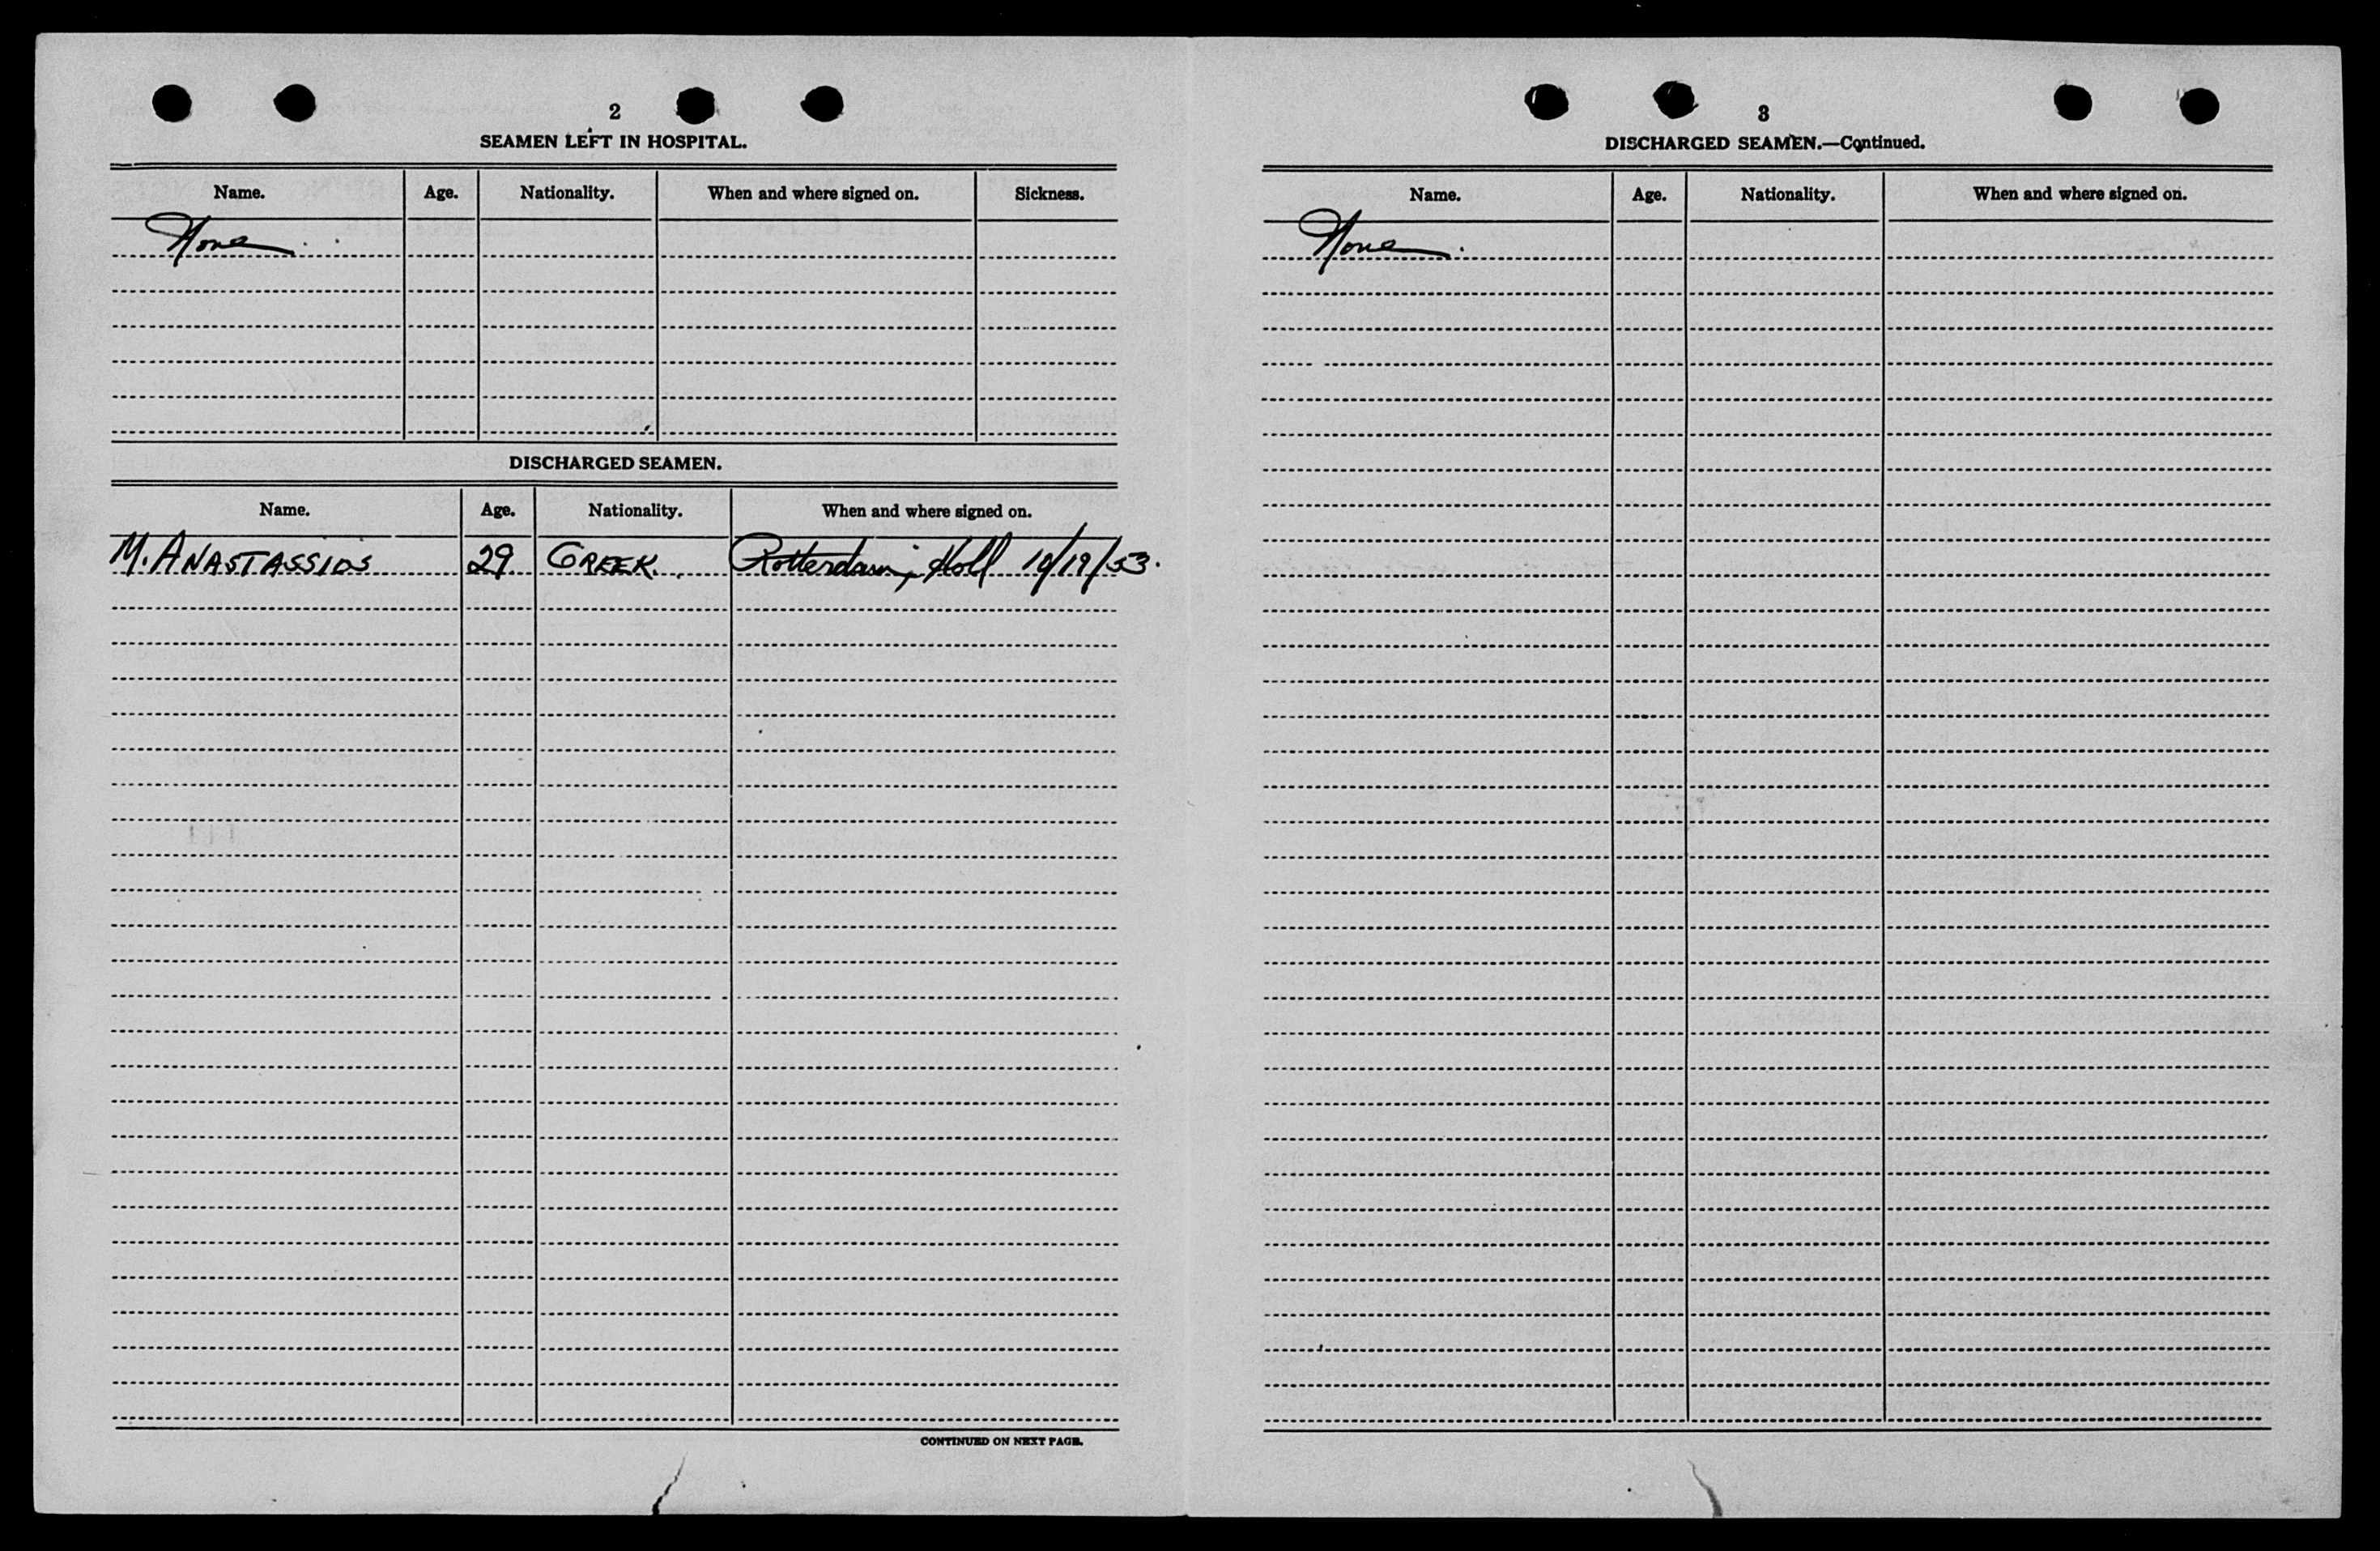 2
SEAMEN LEFT IN HOSPITAL.
Name. Age. Nationality. When and where signed on. Sickness.
None
DISCHARGED SEAMEN.
Name. Age. Nationality. When and where signed on.
M. ANASTASSIOS 29 GREEK. Rotterdam, Holl 10/19/53.
CONTINUED ON NEXT PAGE.
3
DISCHARGED SEAMEN.—Continued.
Name. Age. Nationality. When and where signed on.
None.